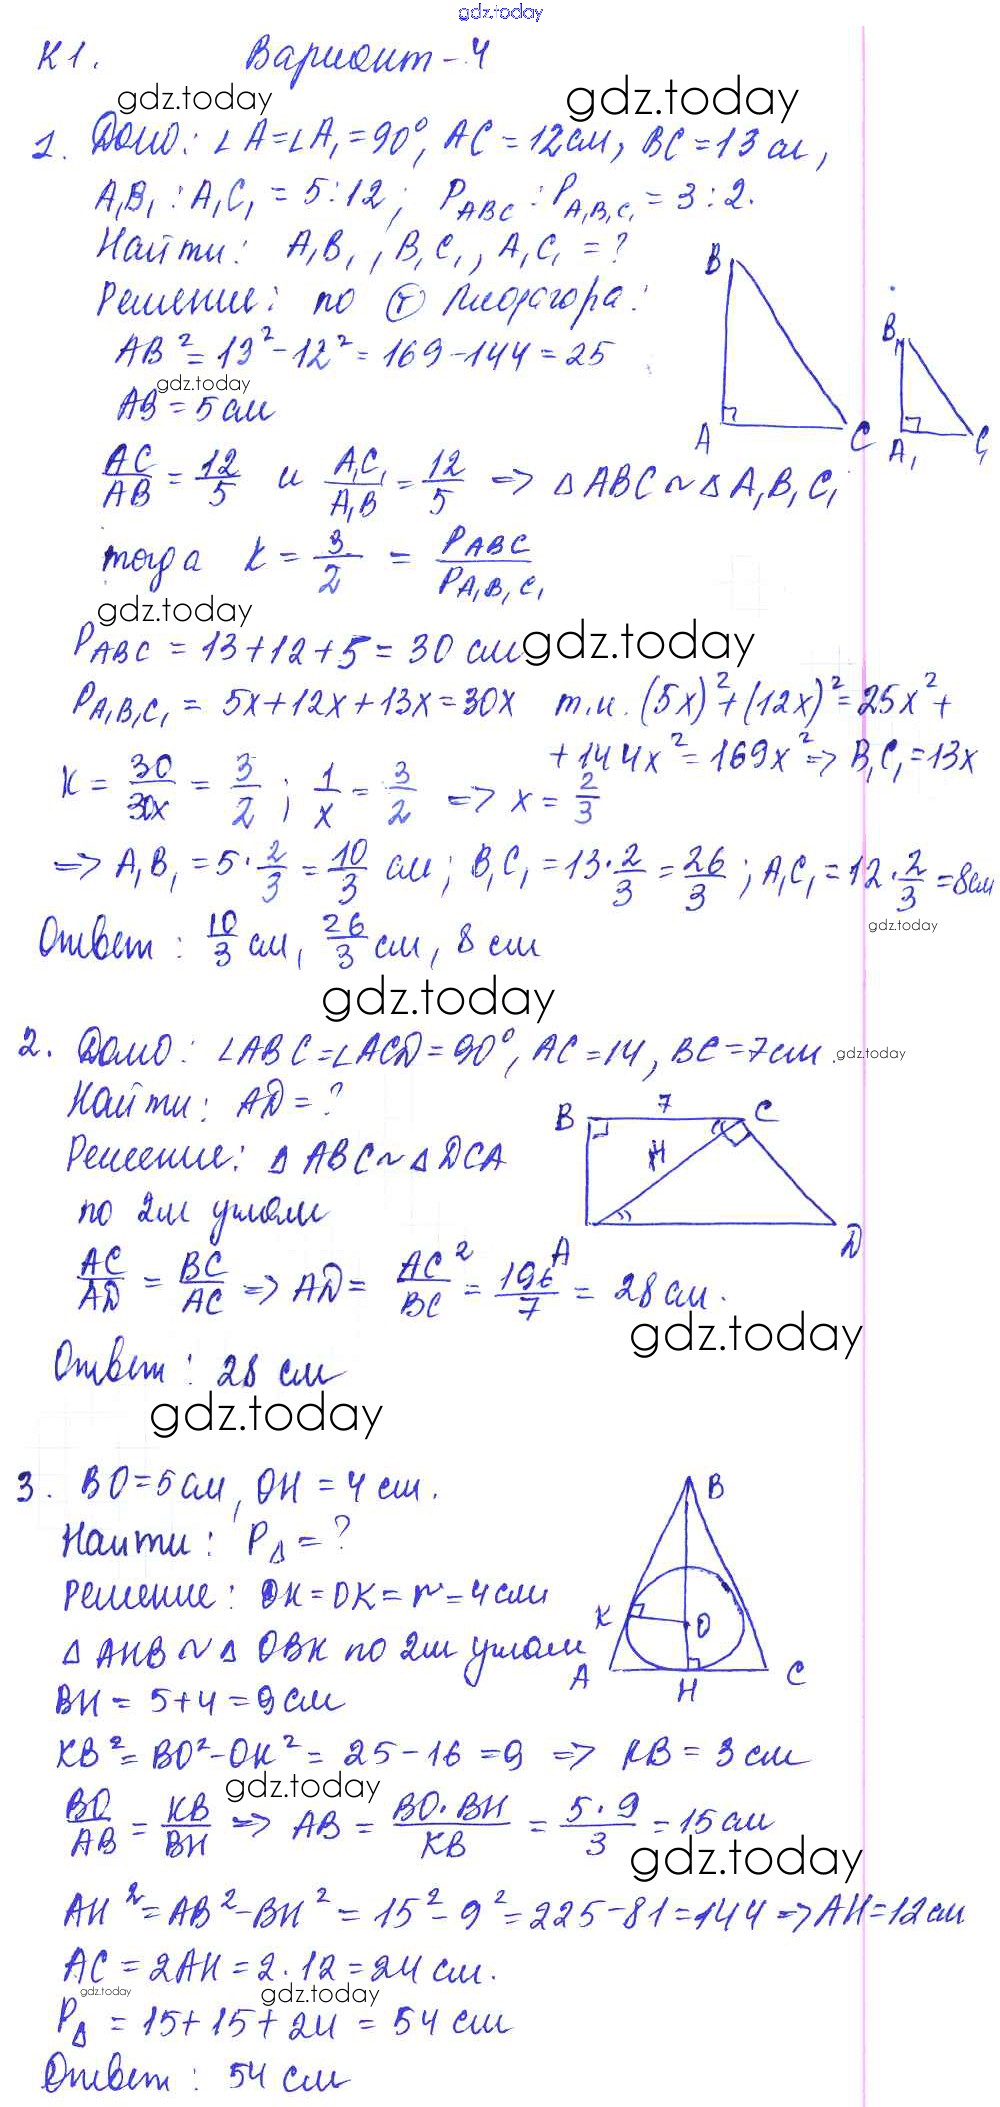 gdz.today
К1. Вариант-4
gdz.today gdz.today
1. Дано: ∠A=∠A₁=90°, AC=12см, BC=13см,
A₁B₁:A₁C₁=5:12; P_ABC:P_A₁B₁C₁=3:2.
Найти: A₁B₁, B₁C₁, A₁C₁=?
Решение: по Ⓣ Пифагора:
AB²=13²-12²=169-144=25
gdz.today
AB=5см
B A C
B₁ A₁ C₁
AC/AB=12/5 и A₁C₁/A₁B=12/5 => ΔABC~ΔA₁B₁C₁
тогда K=3/2=P_ABC/P_A₁B₁C₁
gdz.today
P_ABC=13+12+5=30 см gdz.today
P_A₁B₁C₁=5x+12x+13x=30x т.к. (5x)²+(12x)²=25x²+
+144x²=169x²=> B₁C₁=13x
K=30/30x=3/2; 1/x=3/2 => x=2/3
=> A₁B₁=5·2/3=10/3 см; B₁C₁=13·2/3=26/3; A₁C₁=12·2/3=8см
gdz.today
Ответ: 10/3 см, 26/3 см, 8 см
gdz.today
2. Дано: ∠ABC=∠ACD=90°, AC=14, BC=7см. gdz.today
Найти: AD=?
B 7 C
14
A D
Решение: ΔABC~ΔDCA
по 2м углам
AC/AD=BC/AC => AD=AC²/BC=196/7=28см.
gdz.today
Ответ: 28 см
gdz.today
3. BO=5см, OH=4см.
Найти: P_Δ=?
Решение: OH=OK=r=4см
B K O A H C
ΔAHB~ΔOBK по 2м углам
BH=5+4=9см
KB²=BO²-OK²=25-16=9 => KB=3см
gdz.today
BO/AB=KB/BH => AB=BO·BH/KB=5·9/3=15см
gdz.today
AH²=AB²-BH²=15²-9²=225-81=144=>AH=12см
AC=2AH=2·12=24см.
gdz.today gdz.today
P_Δ=15+15+24=54см
Ответ: 54 см